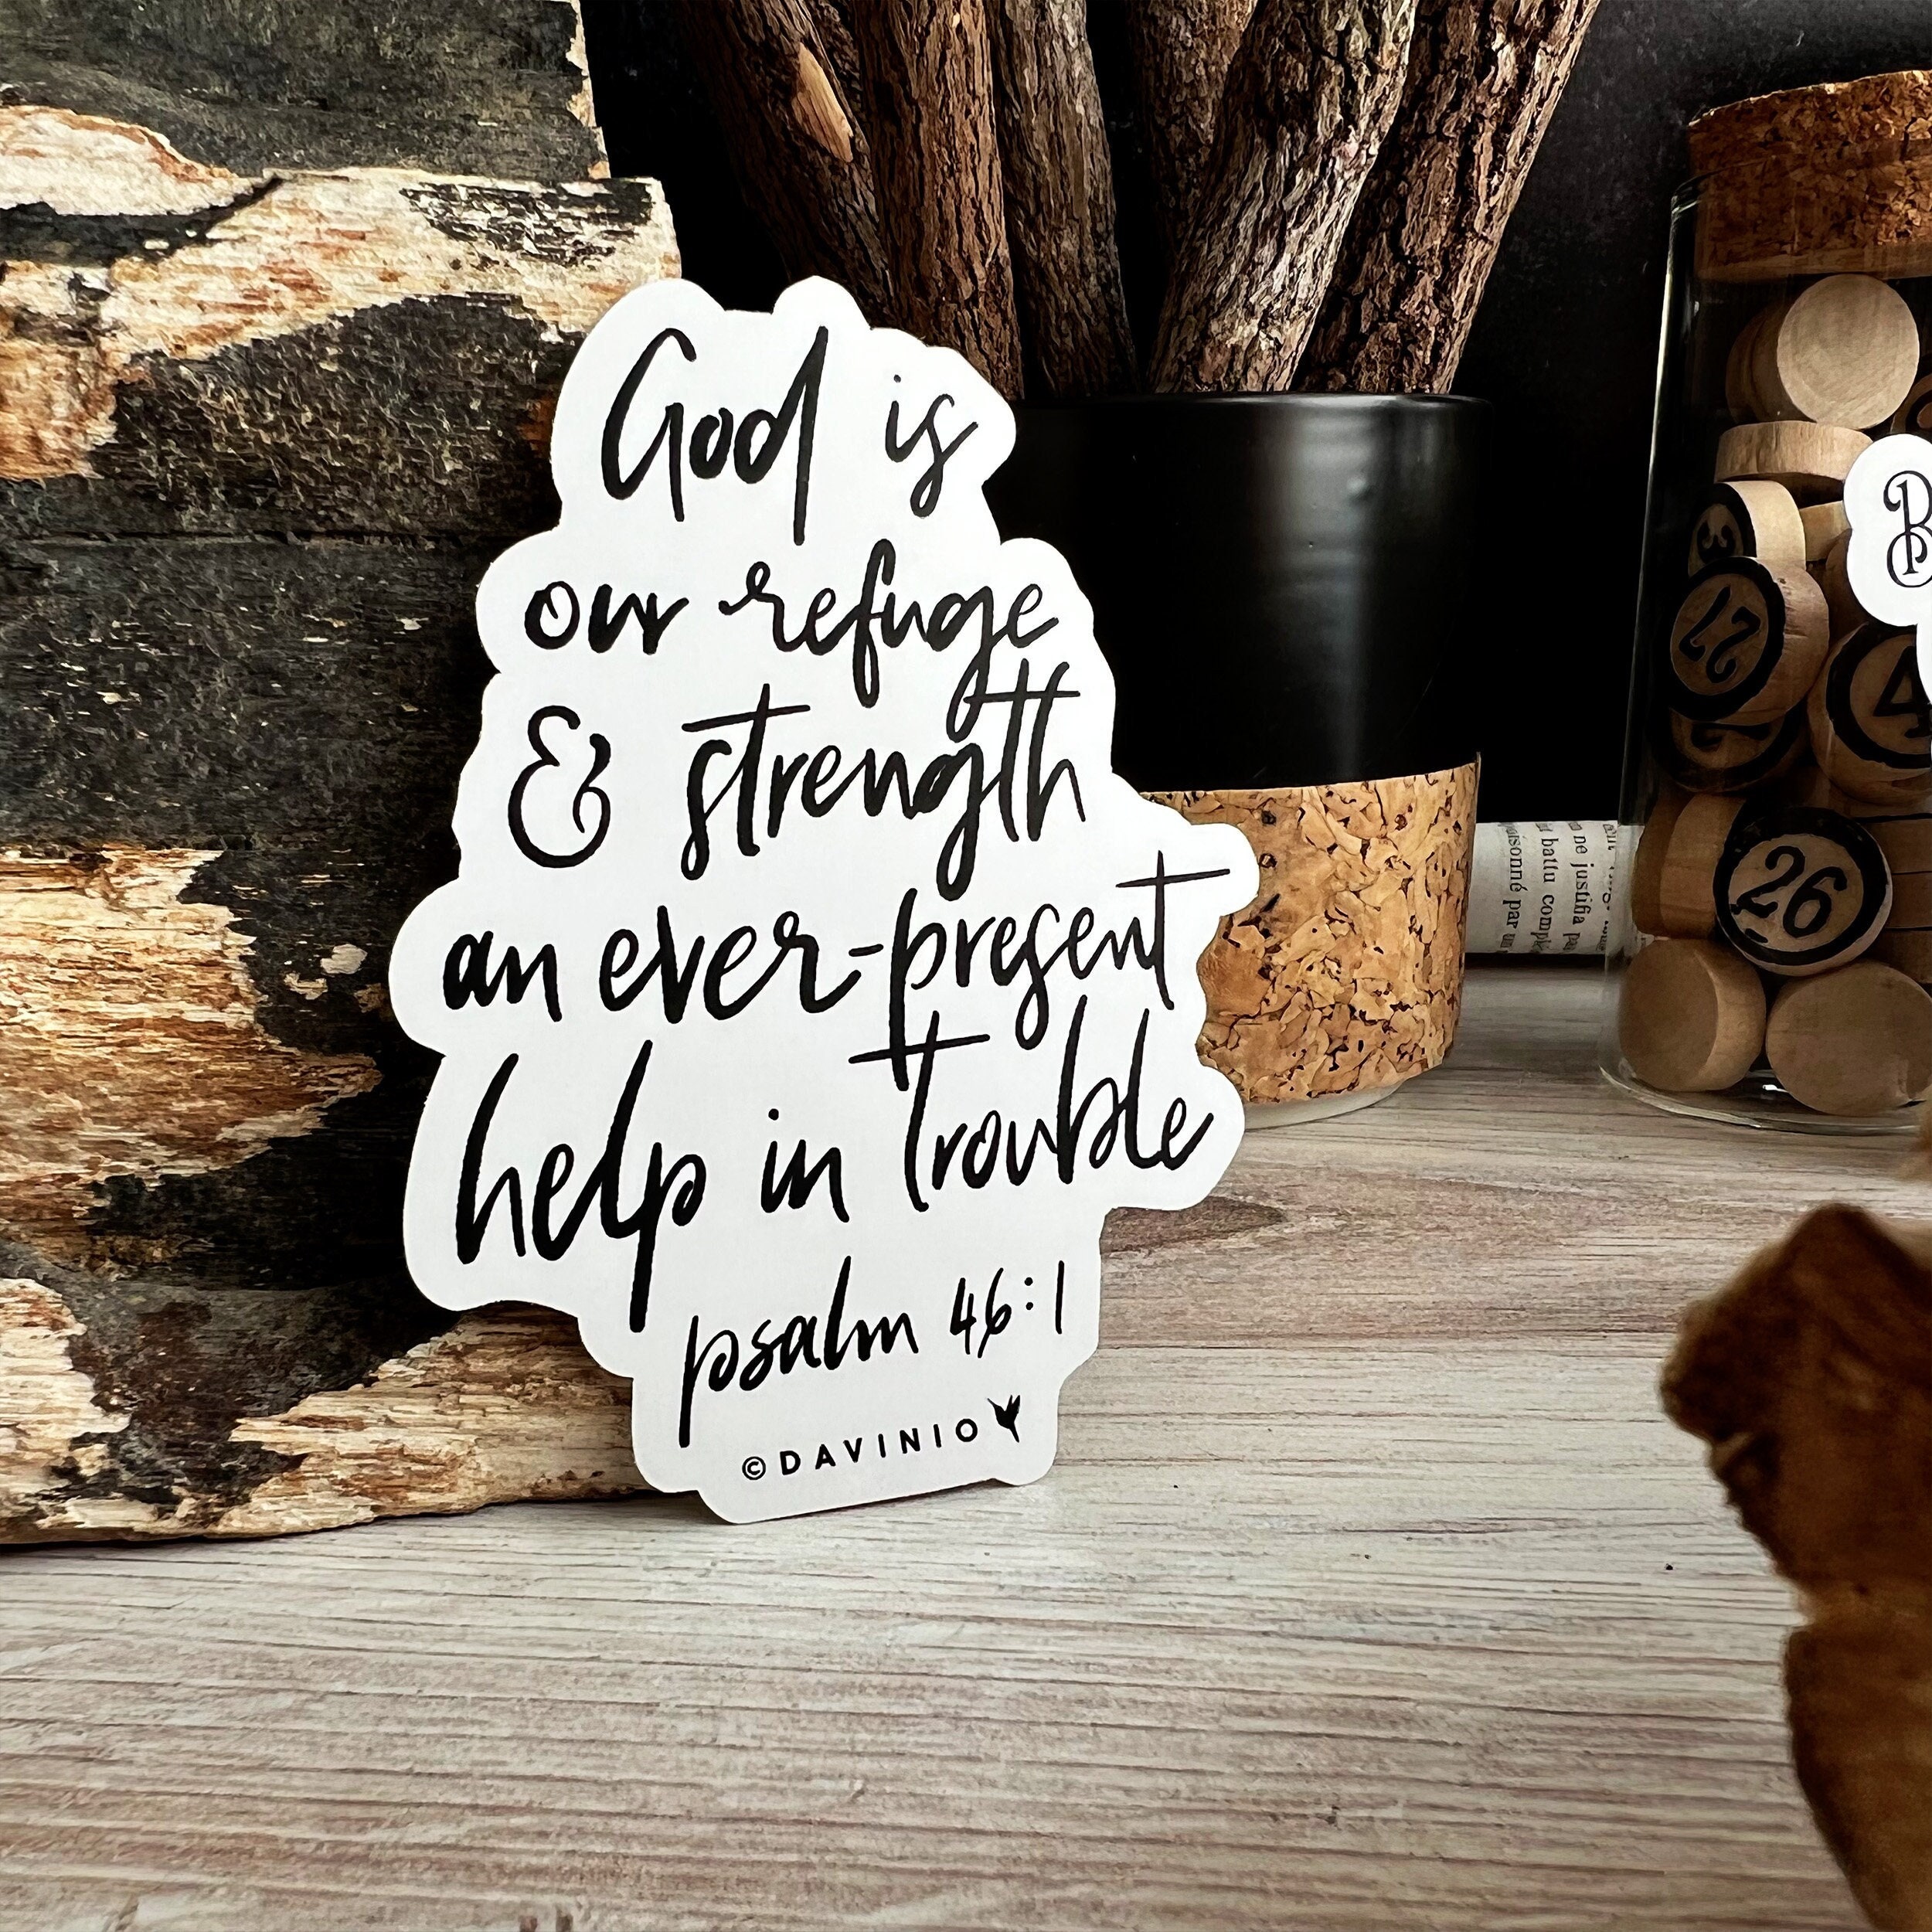 God is
our refuge
& strength
an ever-present
help in trouble
psalm 46:1
© DAVINIO
27
4
26
B
ne justifia
battu
par